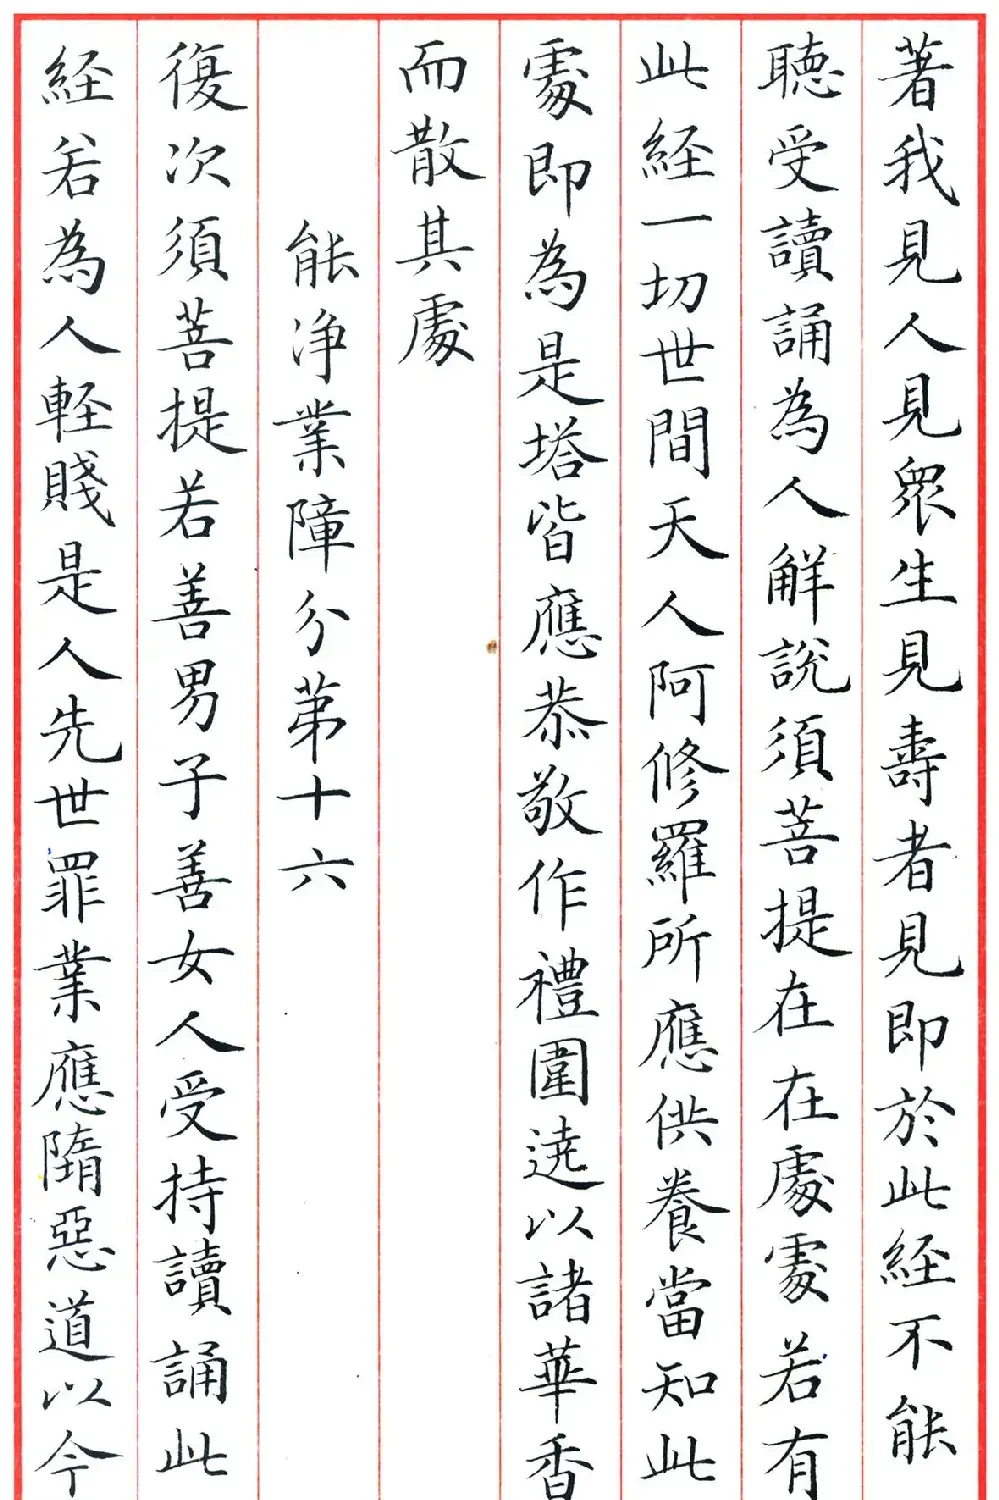 著我見人見衆生見壽者見即於此経不能
聴受讀誦為人解説須菩提在在處處若有
此経一切世間天人阿修羅所應供養當知此
處即為是塔皆應恭敬作禮圍遶以諸華香
而散其處
能净業障分第十六
復次須菩提若善男子善女人受持讀誦此
経若為人軽賤是人先世罪業應隋惡道以今